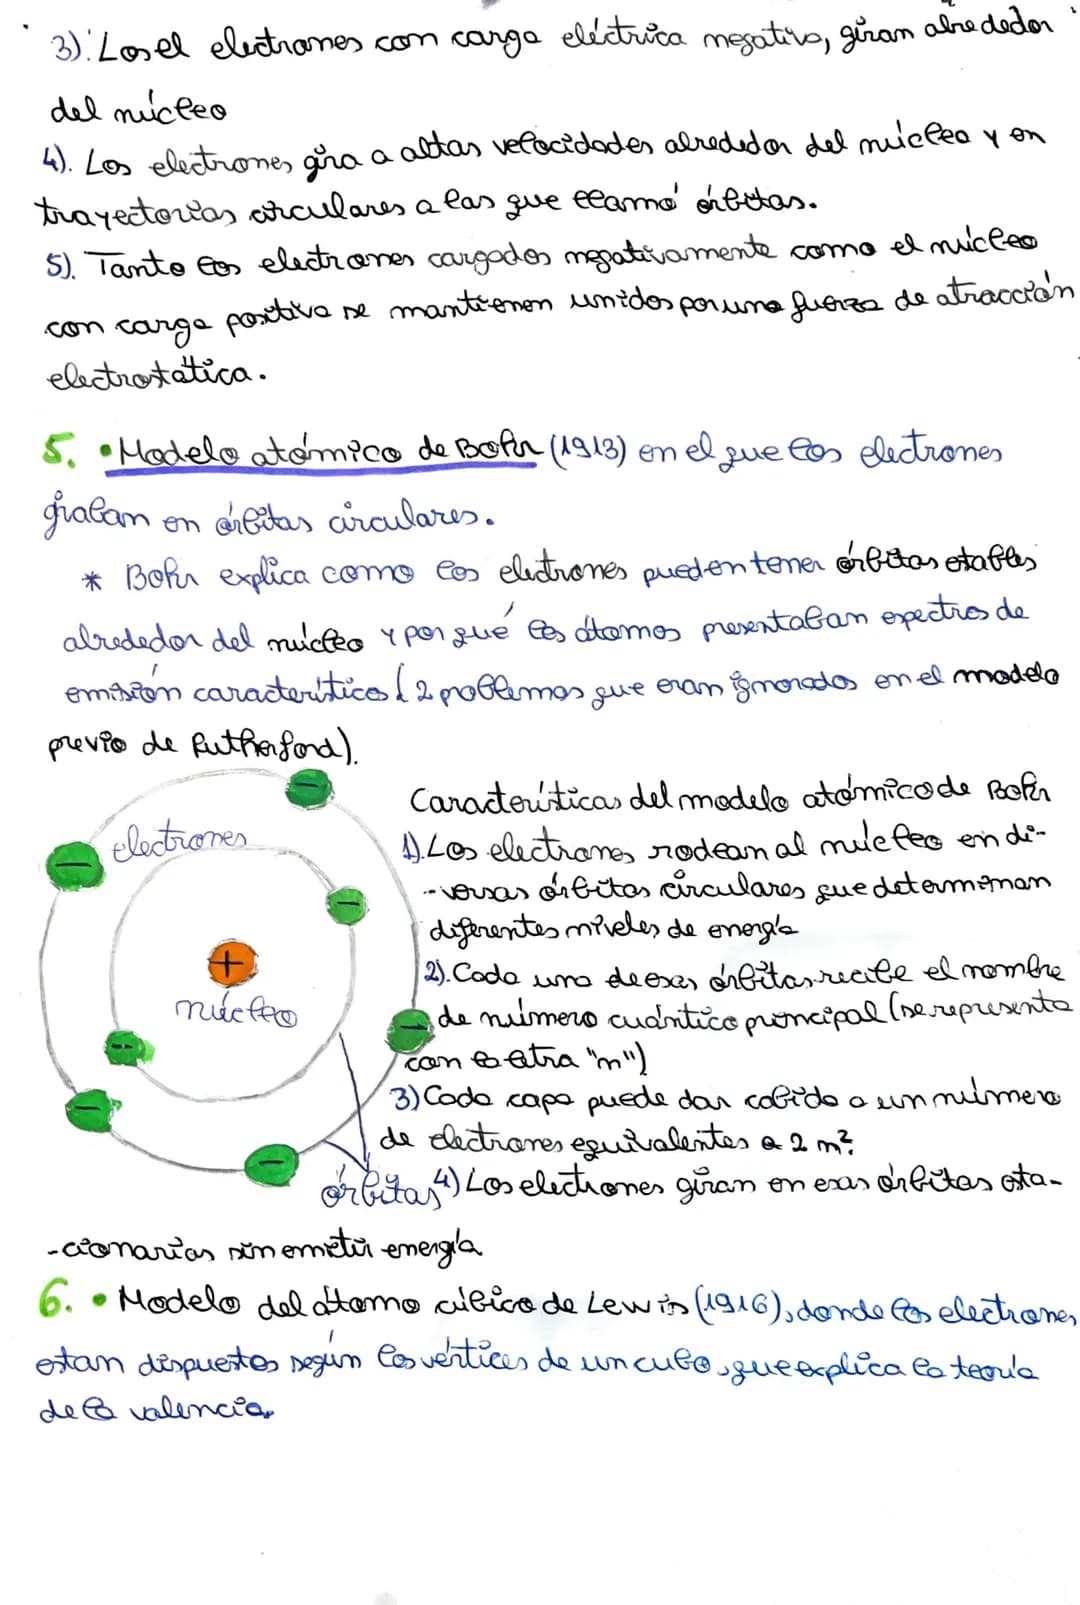 3). Los el electrones con carga eléctrica negativa, giran alrededor
del núcleo
4). Los electrones gira a altas velocidades alrededor del núcleo y en
trayectorias circulares a las que llamó órbitas.
5). Tanto los electrones cargados negativamente como el núcleo
con carga positiva se mantienen unidos por una fuerza de atracción
electrostática.
5. • Modelo atómico de Bohr (1913) en el que los electrones
giraban en órbitas circulares.
* Bohr explica como los electrones pueden tener órbitas estables
alrededor del núcleo y por qué los átomos presentaban espectros de
emisión característicos (2 problemas que eran ignorados en el modelo
previo de Rutherford).
Características del modelo atómico de Bohr
electrones
1). Los electrones rodean al núcleo en di-
-versas órbitas circulares que determinan
diferentes niveles de energía
+
2). Cada una de esas órbitas recibe el nombre
núcleo
de número cuántico principal (se representa
con la letra "n")
3) Cada capa puede dar cabida a un número
de electrones equivalentes a 2 n².
órbitas
4) Los electrones giran en esas órbitas esta-
-cionarias sin emetir energía
6. • Modelo del átomo cúbico de Lewis (1916), donde los electrones
estan dispuestos según los vértices de un cubo, que explica la teoría
de la valencia.